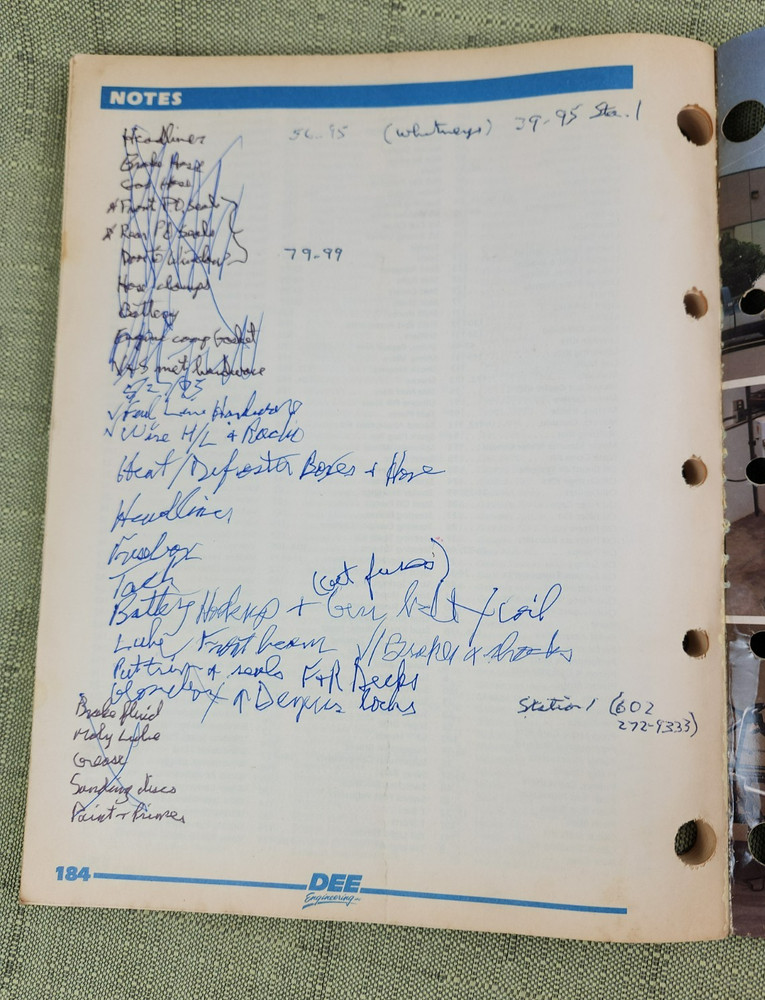 NOTES
Headliner 56-95 (Whitneys) 39-95 Sta. 1
Brake Hose
Gas Hose
x Front PO Seals
x Rear PO Seals
Door & Window 79-99
Hose clamps
Battery
Engine comp Gasket
hardware
5/27/93
✓ Fuel Line Hardware
✓ Wire H/L + Radio
Heat/Defroster Boxes + Hose
Headliner
Fusebox
Tach
(cut fuses)
Battery Hookup + Gen, coil
Lube, Front beam // Brakes & shocks
Put trim & seals F+R Decks
Glovebox locks
Brake fluid Station 1 (602
272-9333)
Moly Lube
Grease
Sanding discs
Paint + Primer
184
DEE
Engineering